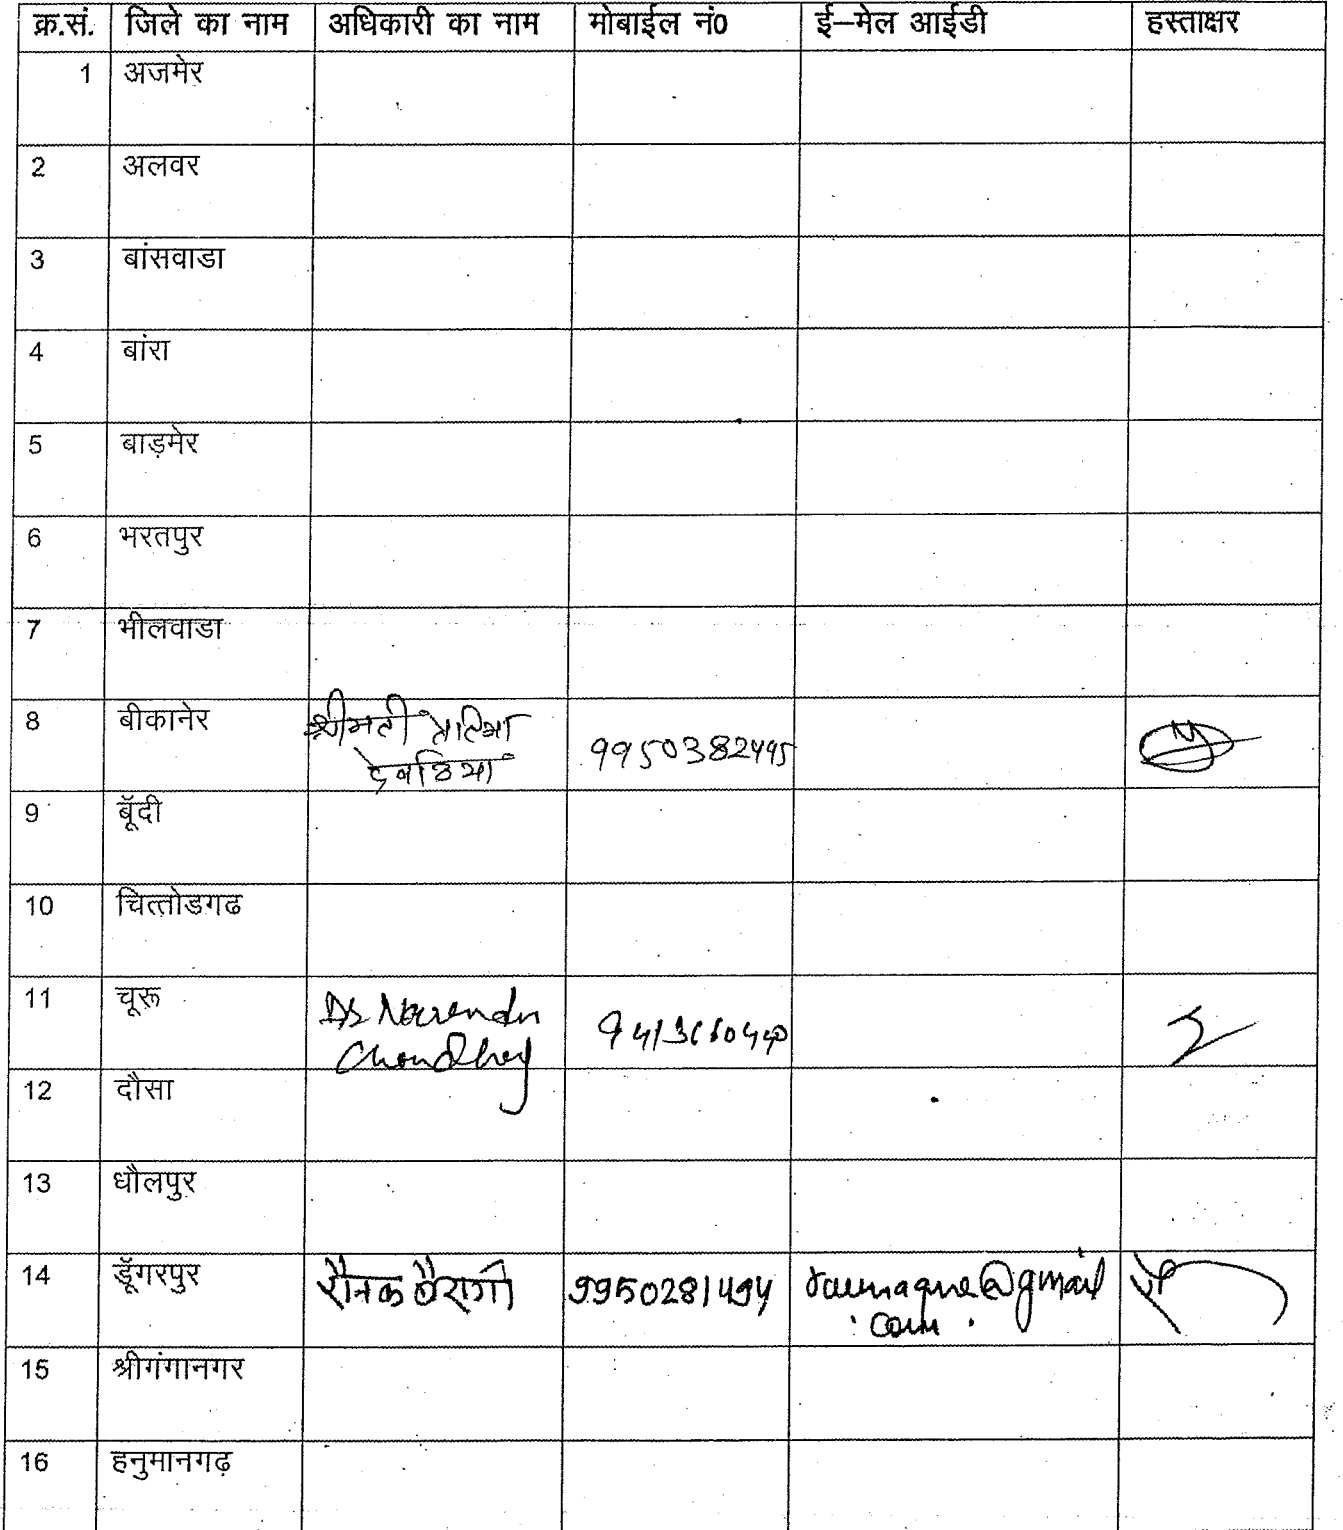 क्र.सं. जिले का नाम अधिकारी का नाम मोबाईल नं0 ई–मेल आईडी हस्ताक्षर
1 अजमेर
2 अलवर
3 बांसवाडा
4 बांरा
5 बाड़मेर
6 भरतपुर
7 भीलवाडा
8 बीकानेर श्रीमती
9950382495
9 बूँदी
10 चित्तोडगढ
11 चूरू Dr Narendra
Choudhary
12 दौसा
13 धौलपुर
14 डूँगरपुर रौनक बैरागी 9950281494 @gmail
com
15 श्रीगंगानगर
16 हनुमानगढ़